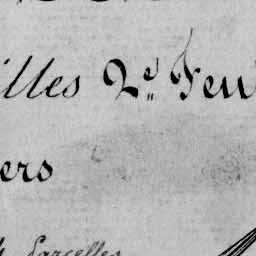 illes 2e Feu
ers
Parcelles